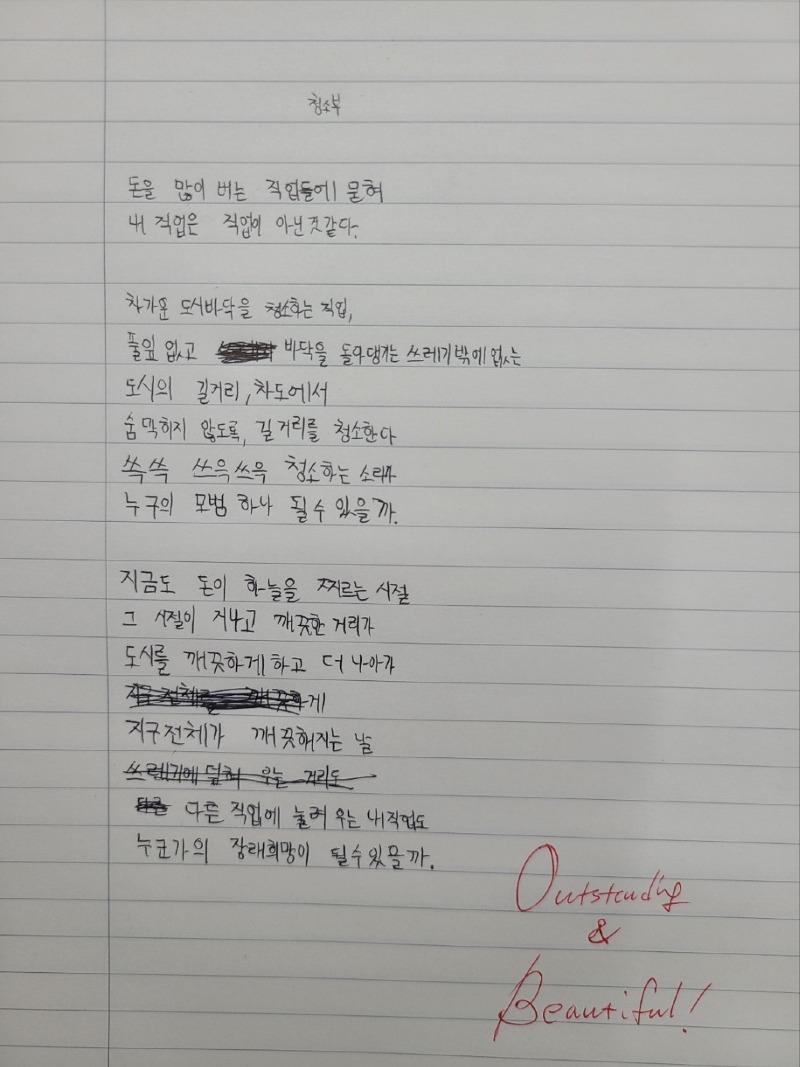 청소부
돈을 많이 버는 직업들에 묻혀
내 직업은 직업이 아닌것같다.
차가운 도시바닥을 청소하는 직업,
풀잎 없고 바닥을 돌아댕기는 쓰레기밖에 없는
도시의 길거리, 차도에서
숨막히지 않도록, 길거리를 청소한다
쓱쓱 쓰윽쓰윽 청소하는 소리가
누구의 모범 하나 될 수 있을까.
지금도 돈이 하늘을 찌르는 시절
그 시절이 지나고 깨끗한 거리가
도시를 깨끗하게 하고 더 나아가
지구 전체를 깨끗하게
지구전체가 깨끗해지는 날
쓰레기에 덮혀 우는 거리도
다른 직업에 눌려 우는 내직업도
누군가의 장래희망이 될수있을까.
Outstanding
&
Beautiful!